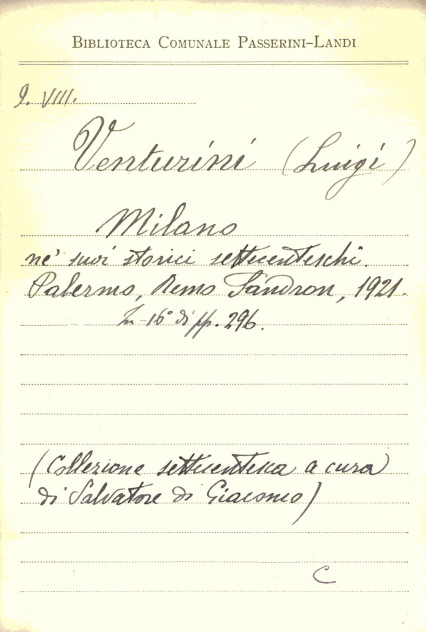 BIBLIOTECA COMUNALE PASSERINI-LANDI
9. VIII.
Venturini (Luigi)
Milano
ne' suoi storici settecenteschi.
Palermo, Remo Sandron, 1921.
In-16° di pp. 296.
(Collezione settecentesca a cura
di Salvatore di Giacomo)
C